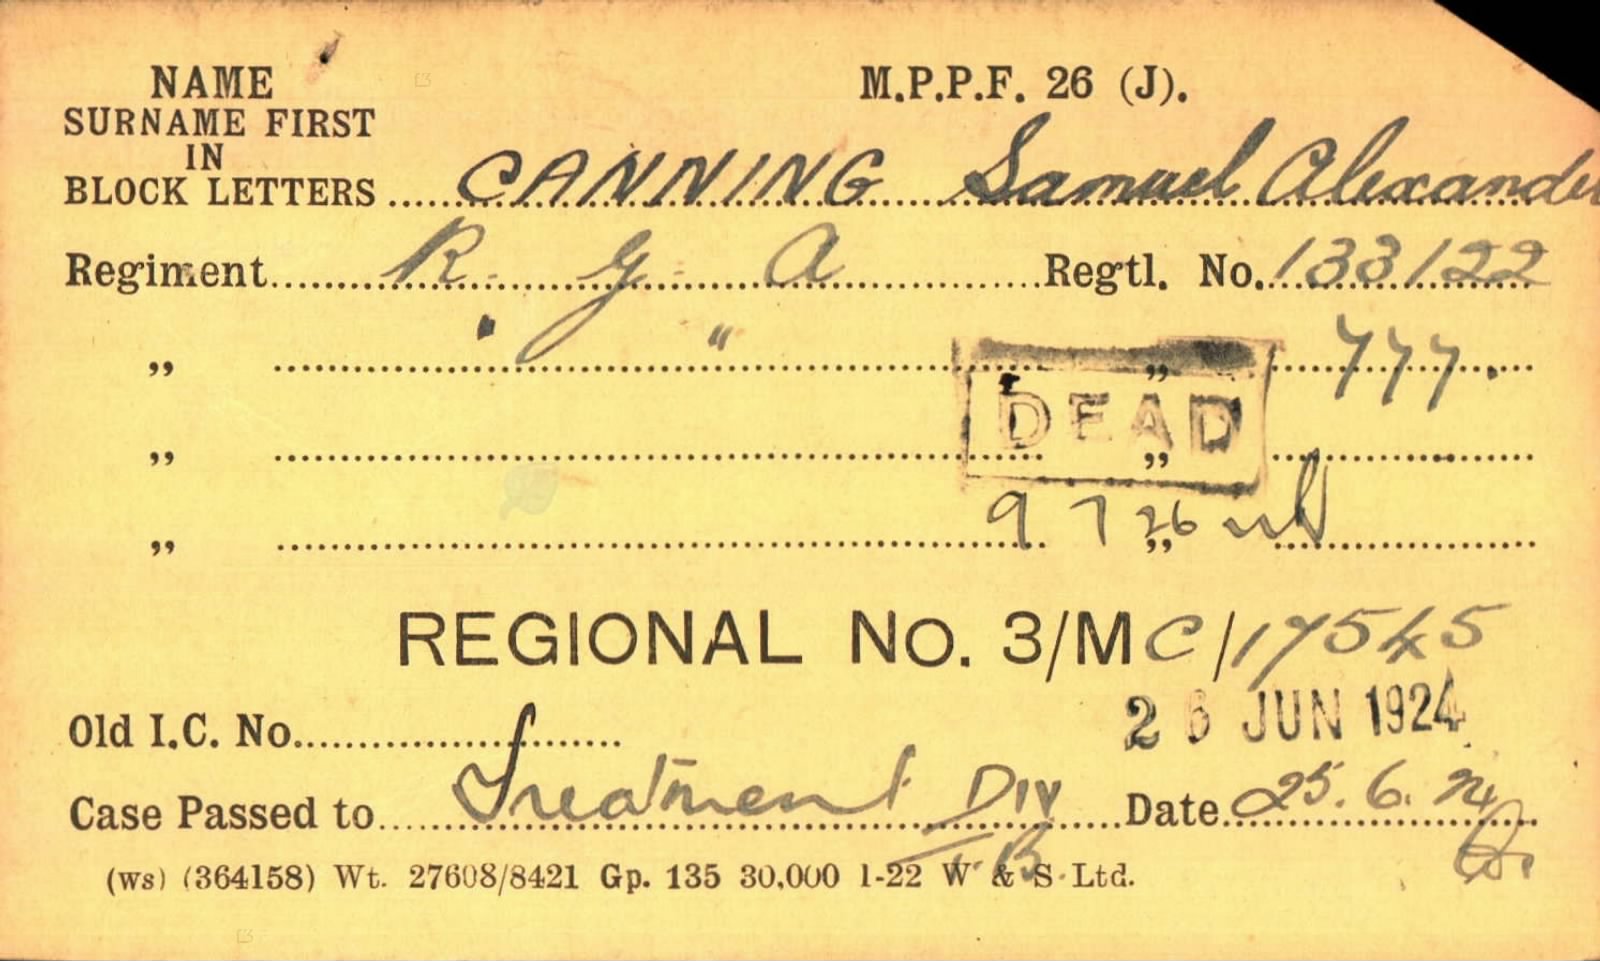 NAME
M.P.P.F. 26 (J).
SURNAME FIRST
IN
BLOCK LETTERS CANNING Samuel Alexander
Regiment R. G. A Regtl. No. 133122
„ " " „ 777.
DEAD
„ „
„ 9 7 26 „
REGIONAL No. 3/MC/17545
26 JUN 1924
Old I.C. No.
Case Passed to Treatment Div Date 25.6.24
T.B.
(ws) (364158) Wt. 27608/8421 Gp. 135 30,000 1-22 W & S Ltd.